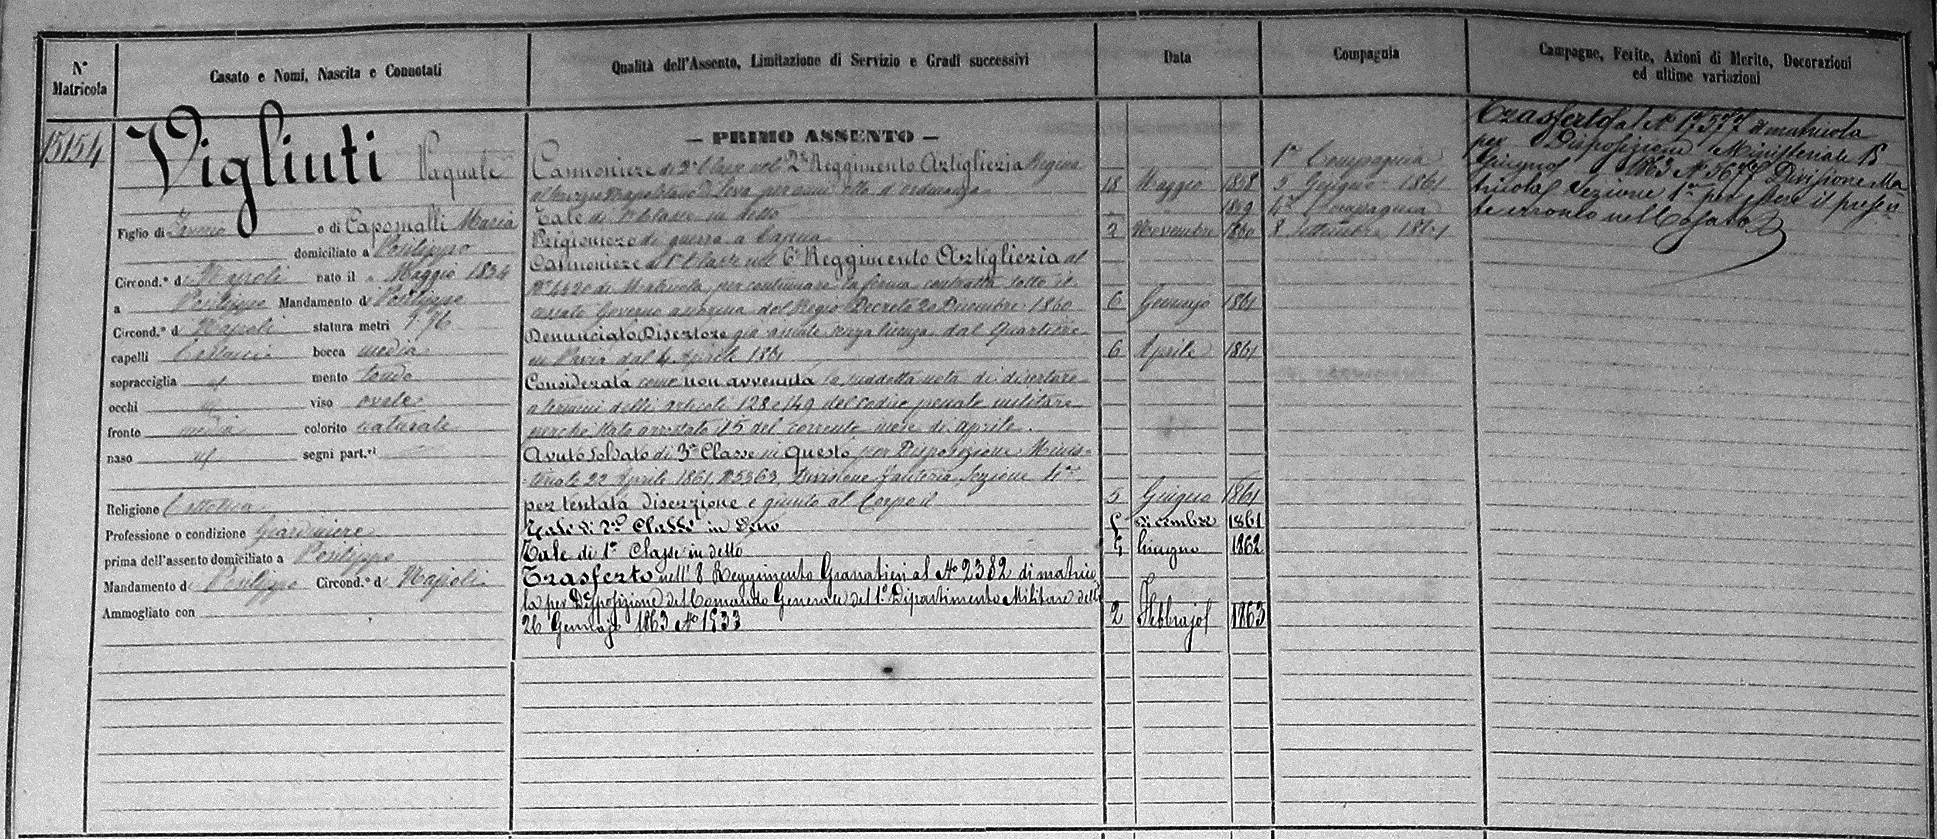 N° Matricola
Casato e Nomi, Nascita e Connotati
Qualità dell'Assento, Limitazione di Servizio e Gradi successivi
Data
Compagnia
Campagne, Ferite, Azioni di Merito, Decorazioni
ed ultime variazioni
15154
Vigliuti Pasquale
Figlio di e di Capomalli Maria
domiciliato a Posilippo
Circond.° di Napoli nato il Maggio 1834
a Posilippo Mandamento di Posilippo
Circond.° di Napoli statura metri 1.76
capelli Castani bocca media
sopracciglia id mento tondo
occhi id viso ovale
fronte media colorito naturale
naso id segni part.ri
Religione Cattolica
Professione o condizione Giardiniere
prima dell'assento domiciliato a Posilippo
Mandamento di Posilippo Circond.° di Napoli
Ammogliato con
— PRIMO ASSENTO —
Cannoniere di 2a Classe nel 2° Reggimento Artiglieria Regina
Napolitano di Leva per anni otto d'ordinanza 18 Maggio 1858
Tale di 1a Classe in detto 1859
Prigioniero di guerra a Capua 2 Novembre 1860
Cannoniere di 1a Classe nel 6° Reggimento Artiglieria al
N° 4420 di Matricola per continuare la ferma contratta sotto il
cessato Governo a norma del Regio Decreto 20 Dicembre 1860 6 Gennajo 1861
Denunciato Disertore già assente senza licenza dal Quartiere
in Pavia dal 4 Aprile 1861 6 Aprile 1861
Considerata come non avvenuta la suddetta nota di disertore
a termini delli articoli 128 e 149 del codice penale militare
perchè stato arrestato il 5 del corrente mese di aprile.
Avuto Soldato di 3a Classe in questo per Disposizione Minis-
teriale 22 Aprile 1861 N 5363 Divisione Fanteria Sezione
per tentata diserzione e giunto al Corpo il 5 Giugno 1861
Tale di 2a Classe in detto dicembre 1861
Tale di 1a Classe in detto Giugno 1862
Trasferto nell'8 Reggimento Granatieri al No 2382 di matrico
la per Disposizione del Comando Generale del 1° Dipartimento Militare delli
26 Gennajo 1863 No 1533 2 Febbrajo 1863
1a Compagnia
5 Giugno 1861
Compagnia
8 Settembre 1861
Trasferto al N° di matricola
per Disposizione Ministeriale 15
Giugno 1863 N° Divisione Ma
tricola Sezione 1a per essere il presen
te erroneo nel Casato